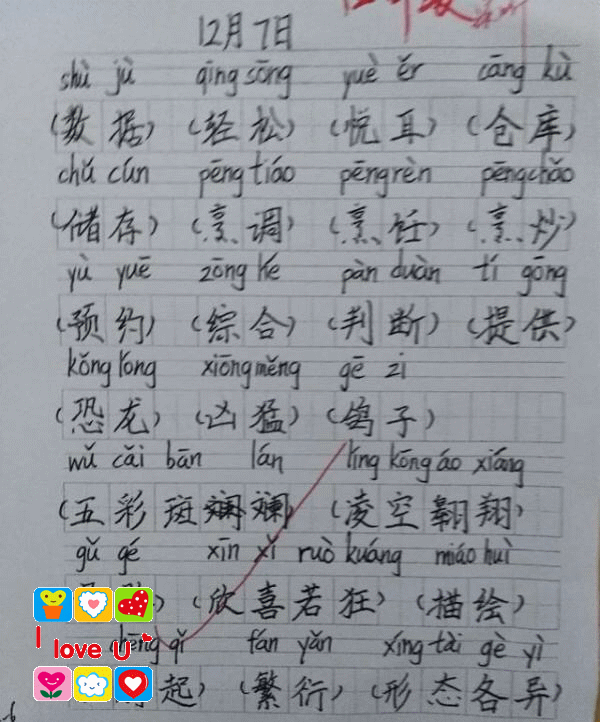 12月7日
shù jù qīng sōng yuè ěr cāng kù
(数据) (轻松) (悦耳) (仓库)
chǔ cún pēng tiáo pēng rèn pēng chǎo
(储存) (烹调) (烹饪) (烹炒)
yù yuē zōng hé pàn duàn tí gōng
(预约) (综合) (判断) (提供)
kǒng lóng xiōng měng gē zi
(恐龙) (凶猛) (鸽子)
wǔ cǎi bān lán líng kōng áo xiáng
(五彩斑斓斓) (凌空翱翔)
gǔ gé xīn xǐ ruò kuáng miáo huì
) (欣喜若狂) (描绘)
I love U
chēng qǐ fán yǎn xíng tài gè yì
起) (繁衍) (形态各异)